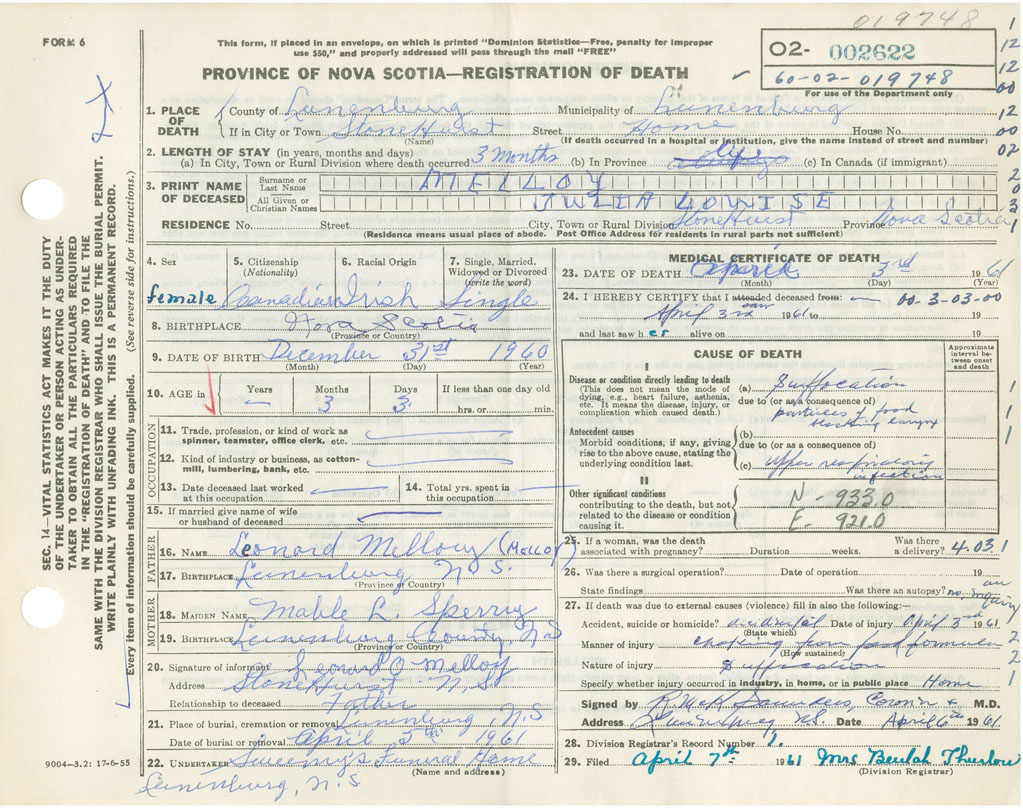 019748
FORM 6
This form, if placed in an envelope, on which is printed "Dominion Statistics—Free, penalty for improper
use $50," and properly addressed will pass through the mail "FREE"
O2- 002622
60-02-019748
For use of the Department only
PROVINCE OF NOVA SCOTIA—REGISTRATION OF DEATH
1. PLACE OF DEATH
County of Lunenburg Municipality of Lunenburg
If in City or Town StoneHurst Street Home House No.
(Name) (If death occurred in a hospital or institution, give the name instead of street and number)
2. LENGTH OF STAY (in years, months and days)
(a) In City, Town or Rural Division where death occurred 3 Months (b) In Province life (c) In Canada (if immigrant)
3. PRINT NAME OF DECEASED
Surname or Last Name MELLOY
All Given or Christian Names JULIA LOUISE
RESIDENCE No. Street City, Town or Rural Division StoneHurst Province Nova Scotia
(Residence means usual place of abode. Post Office Address for residents in rural parts not sufficient)
4. Sex female
5. Citizenship (Nationality) Canadian
6. Racial Origin Irish
7. Single, Married, Widowed or Divorced (write the word) Single
8. BIRTHPLACE Nova Scotia
(Province or Country)
9. DATE OF BIRTH December 31st 1960
(Month) (Day) (Year)
10. AGE in Years — Months 3 Days 3 If less than one day old hrs. or min.
OCCUPATION
11. Trade, profession, or kind of work as
spinner, teamster, office clerk, etc.
12. Kind of industry or business, as cotton-
mill, lumbering, bank, etc.
13. Date deceased last worked
at this occupation
14. Total yrs. spent in
this occupation
15. If married give name of wife
or husband of deceased
FATHER
16. NAME Leonard Mellouy (MELLOY)
17. BIRTHPLACE Lunenburg N.S.
(Province or Country)
MOTHER
18. MAIDEN NAME Mable L. Sperry
19. BIRTHPLACE Lunenburg County, N.S
(Province or Country)
20. Signature of informant Leonard O Melloy
Address StoneHurst N.S
Relationship to deceased Father
21. Place of burial, cremation or removal Lunenburg, N.S
Date of burial or removal April 5th 1961
22. UNDERTAKER Sweeny's Funeral Home
(Name and address)
Lunenburg, N.S
9004—3.2: 17-6-55
MEDICAL CERTIFICATE OF DEATH
23. DATE OF DEATH April 3rd 1961
(Month) (Day) (Year)
24. I HEREBY CERTIFY that I attended deceased from: 00-3-03-00
April 3rd 1961 to 19
and last saw her alive on 19
CAUSE OF DEATH
Approximate interval between onset and death
I
Disease or condition directly leading to death
(This does not mean the mode of
dying, e.g., heart failure, asthenia,
etc. It means the disease, injury, or
complication which caused death.)
(a) Suffocation
due to (or as a consequence of)
particles of food
blocking larynx
Antecedent causes
Morbid conditions, if any, giving
rise to the above cause, stating the
underlying condition last.
(b)
due to (or as a consequence of)
(c) Upper respiratory
infection
II
Other significant conditions
contributing to the death, but not
related to the disease or condition
causing it.
N - 933.0
E - 921.0
25. If a woman, was the death
associated with pregnancy? Duration weeks. Was there
a delivery? 4.03 1
26. Was there a surgical operation? Date of operation 19
State findings Was there an autopsy? no,
27. If death was due to external causes (violence) fill in also the following:—
Accident, suicide or homicide? accidental Date of injury April 3rd 1961
(State which)
Manner of injury choking from food formula
(How sustained)
Nature of injury Suffocation
Specify whether injury occurred in industry, in home, or in public place Home
Signed by R. McK Saunders Coroner M.D.
Address Lunenburg N.S. Date April 6th 1961
28. Division Registrar's Record Number 1.
29. Filed April 7th 1961 Mrs Beulah Thurlow
(Division Registrar)
1
12
12
00
12
00
02
2
0
3
1
1
1
1
1
2
2
1
SEC. 14—VITAL STATISTICS ACT MAKES IT THE DUTY
OF THE UNDERTAKER OR PERSON ACTING AS UNDER-
TAKER TO OBTAIN ALL THE PARTICULARS REQUIRED
IN THE "REGISTRATION OF DEATH" AND TO FILE THE
SAME WITH THE DIVISION REGISTRAR WHO SHALL ISSUE THE BURIAL PERMIT.
WRITE PLAINLY WITH UNFADING INK. THIS IS A PERMANENT RECORD.
Every item of information should be carefully supplied. (See reverse side for instructions.)